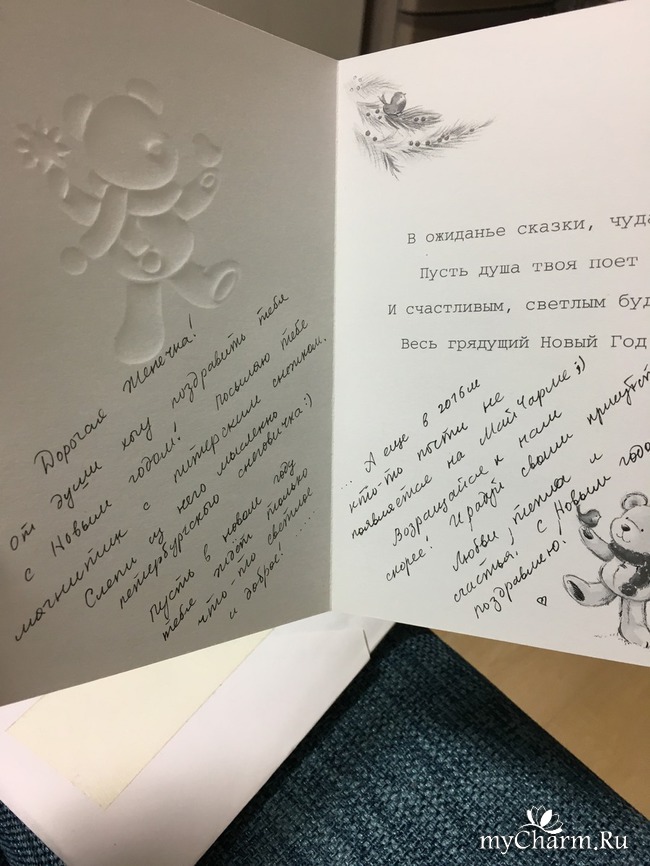 Дорогая Женечка!
От души хочу поздравить тебя
с Новым годом! Посылаю тебе
магнитик с питерским снежком.
Слепи из него мысленно
петербургского снеговичка:)
Пусть в новом году
тебя ждёт только
что-то светлое
и доброе! .....
В ожиданье сказки, чуда
Пусть душа твоя поет
И счастливым, светлым буд
Весь грядущий Новый Год
... А еще в 2016м
кто-то почти не
появляется на МайЧарме ;)
Возращайся к нам
скорее! И радуй своим присутст
Любви, тепла и
счастья, с Новым годо
поздравляю!
myCharm.Ru